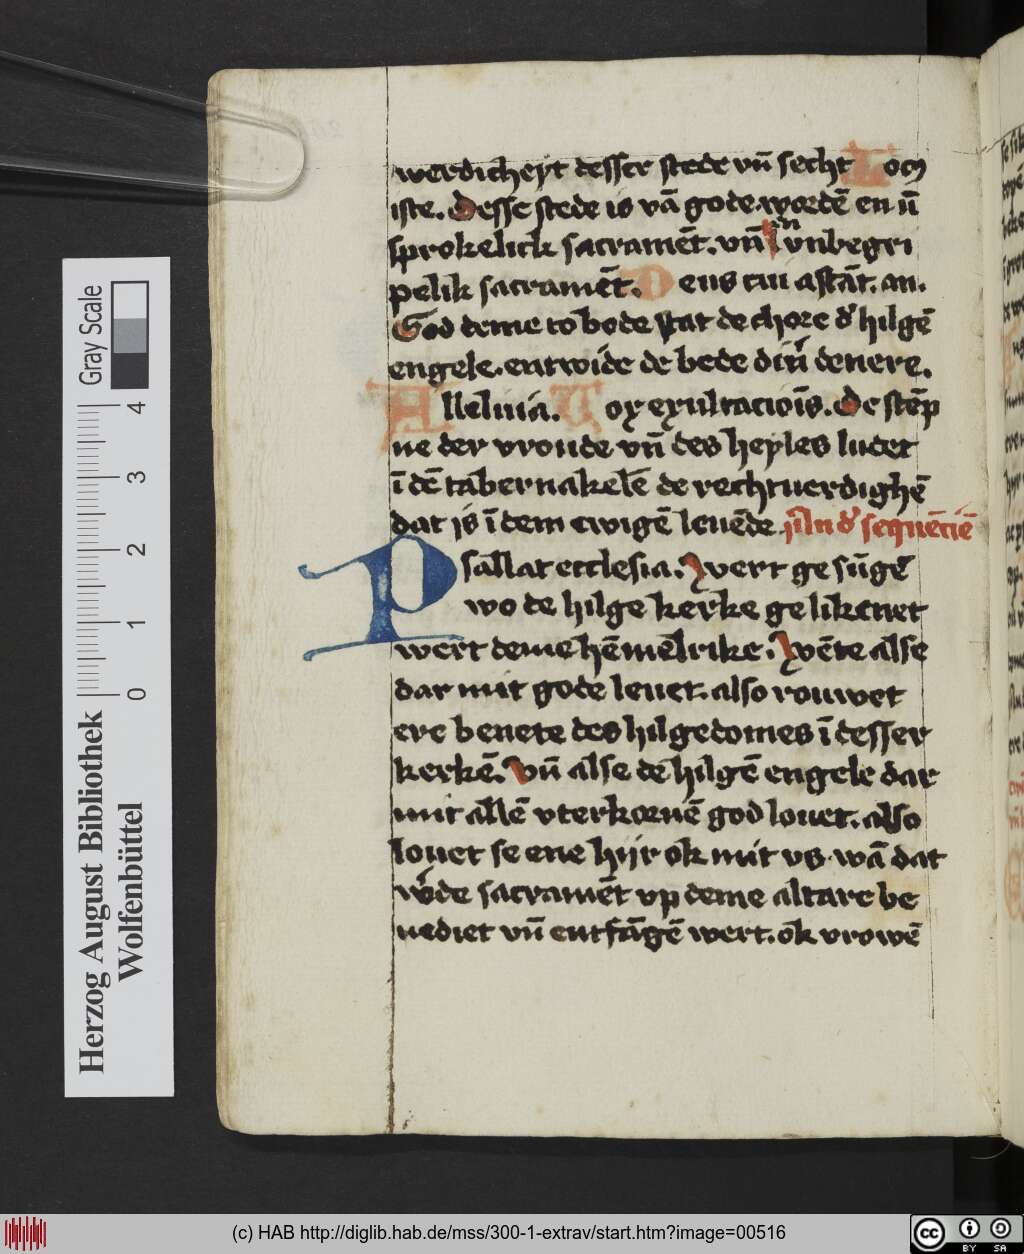 werdicheyt desser stede vn̄ secht Locꝯ
iste. Desse stede is vā gode wordē en ū
sprokelick sacramēt. vn̄ ēn vnbegri
pelik sacramēt. Deus cui astāt. an.
God deme to bode stat de chore d' hilgē
engele. entwide de bede din' denere.
Alleluia. Vox exultaciōis. De stēp
ne der vroude vn̄ des heyles ludet
ī dē tabernakelē de rechtuerdighē
dat is ī dem ewigē leuēde in d' sequēciē
Psallat ecclesia. Wert gesūgē
wo de hilge kerke gelikenet
wert deme hēmelrike. Wēte alse
dar mit gode leuet. also rouwet
ere benete des hilgedomes ī desser
kerkē. Vn̄ alse de hilgē engele dar
mit allē vterkornē god louet. also
louet se ene hijr ok mit vs. wā dat
w'de sacramēt vp deme altare be
nediet vn̄ entfāgē wert. ok vrowē
Gray Scale
4
3
2
1
0
Herzog August Bibliothek
Wolfenbüttel
(c) HAB http://diglib.hab.de/mss/300-1-extrav/start.htm?image=00516
cc BY SA